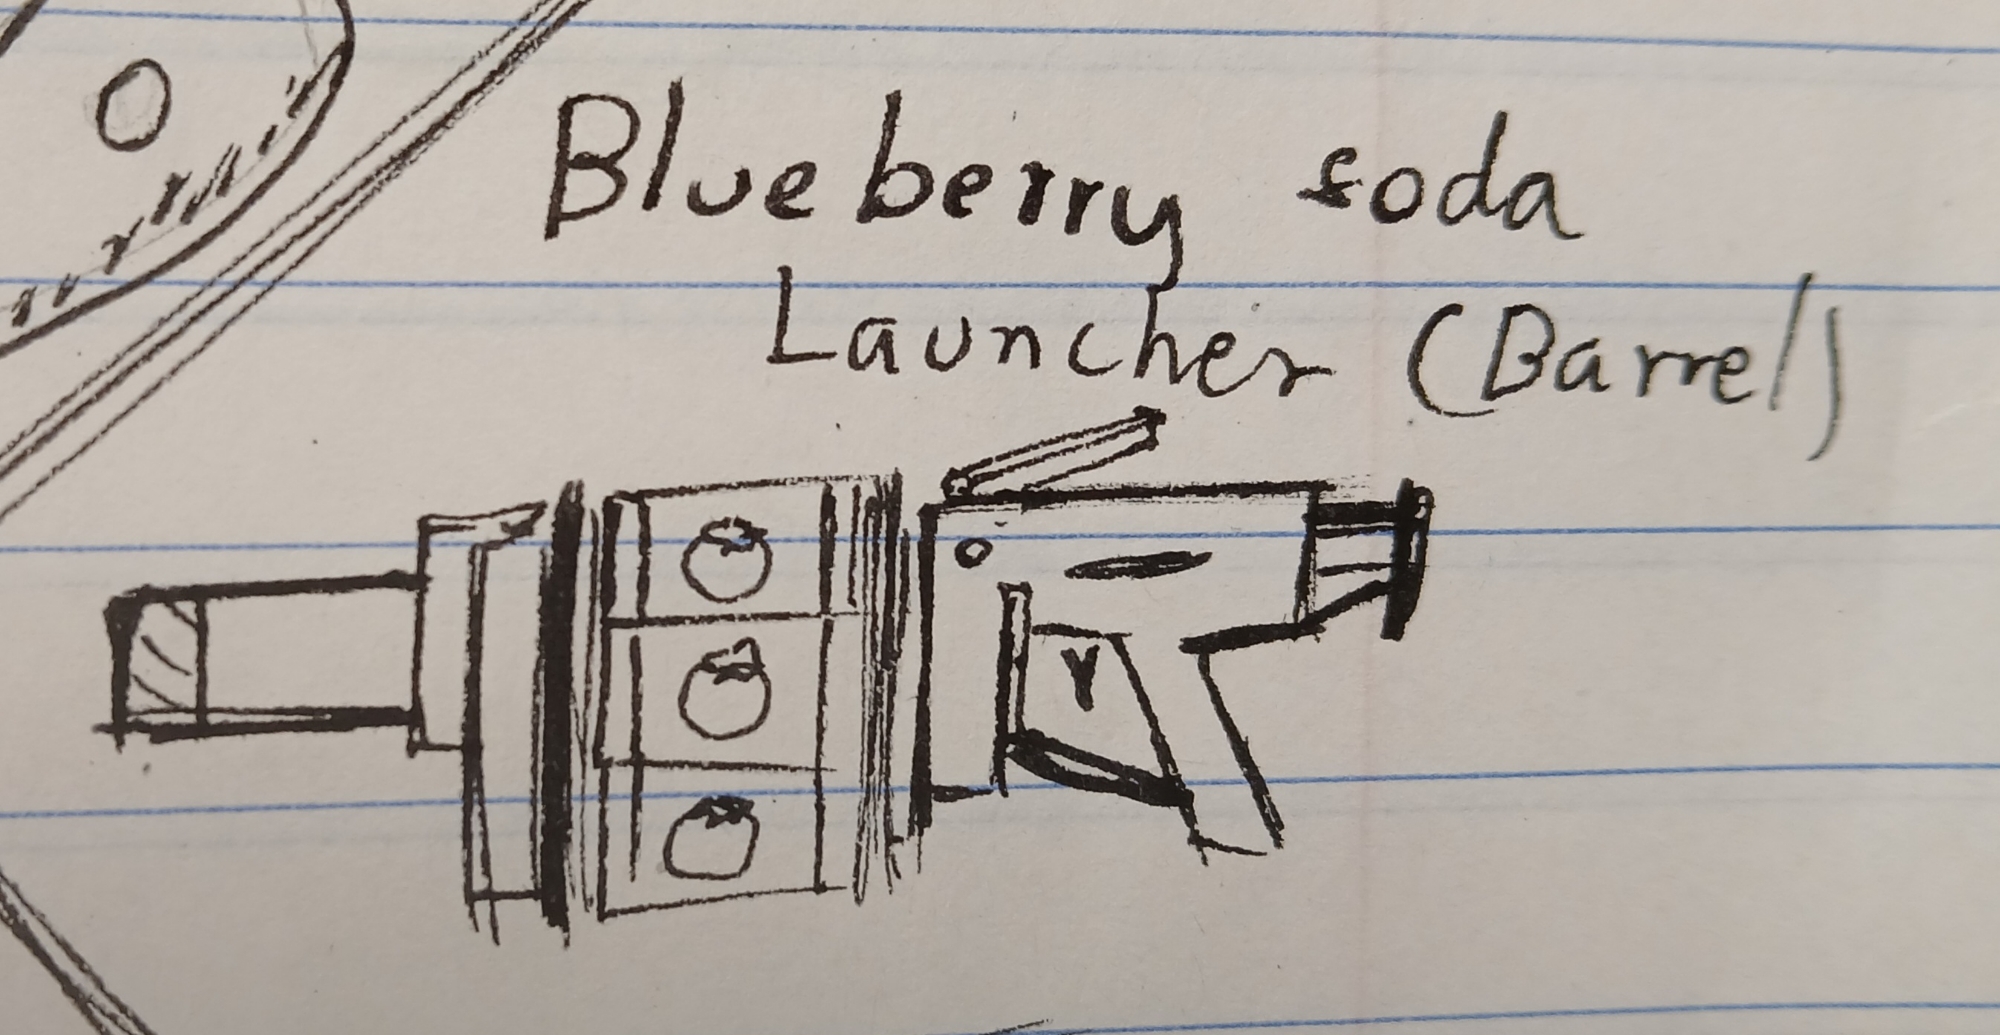 Blueberry soda
Launcher (Barrel)